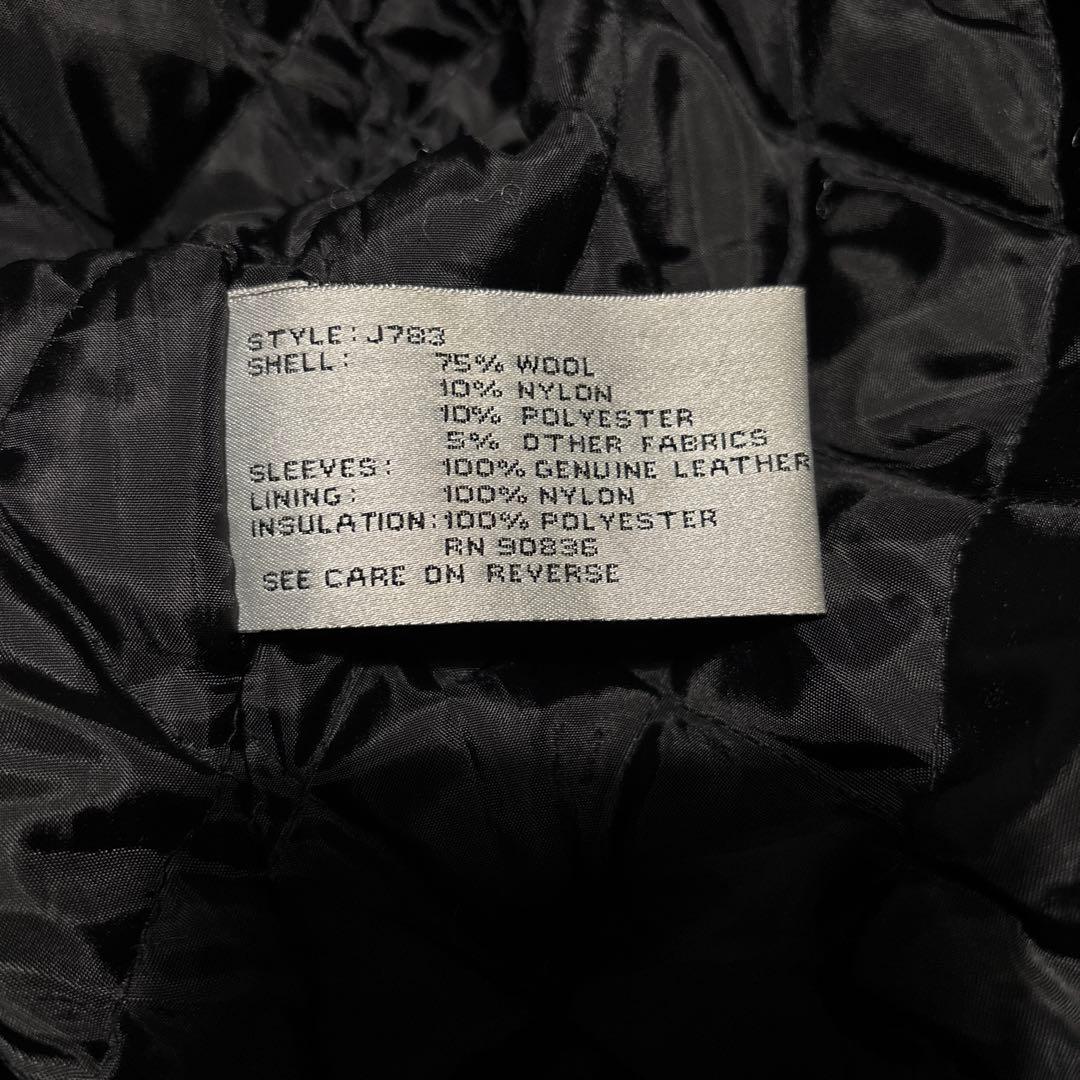 STYLE: J783
SHELL: 75% WOOL
10% NYLON
10% POLYESTER
5% OTHER FABRICS
SLEEVES: 100% GENUINE LEATHER
LINING: 100% NYLON
INSULATION: 100% POLYESTER
RN 90836
SEE CARE ON REVERSE